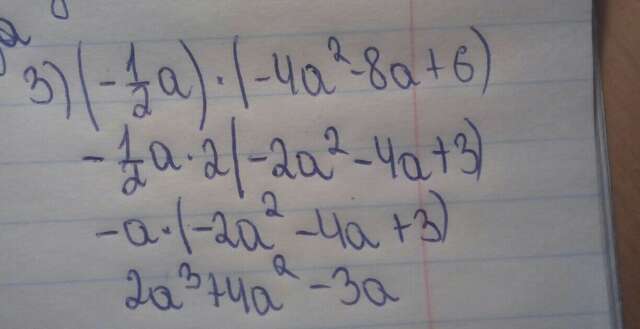 3) (-1/2a)·(-4a²-8a+6)
-1/2a·2(-2a²-4a+3)
-a·(-2a²-4a+3)
2a³+4a²-3a